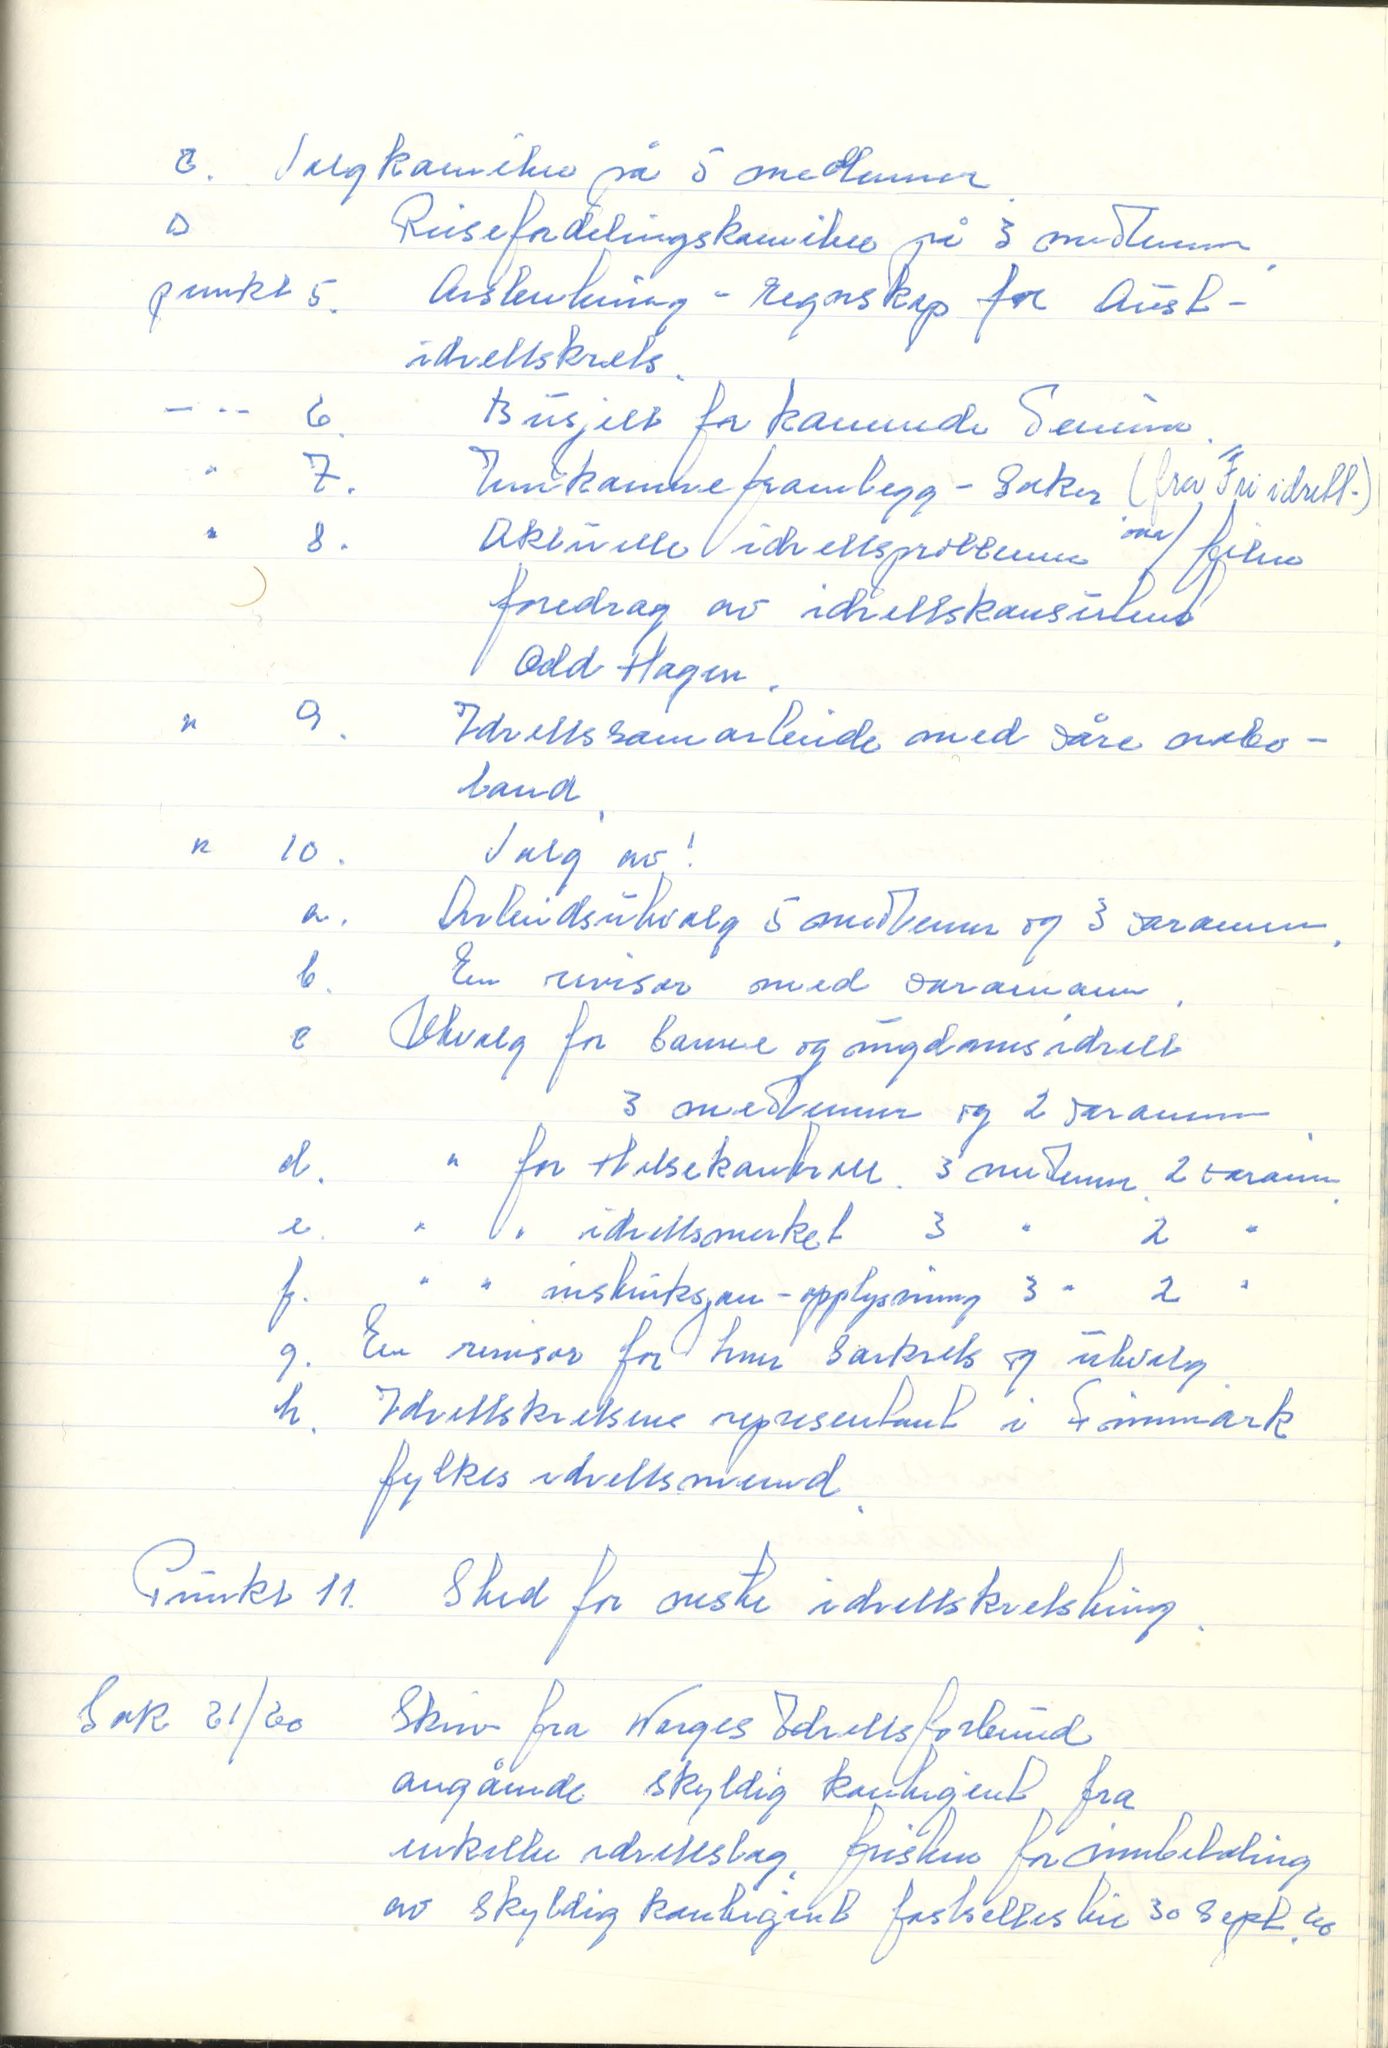 C. Valgkomite på 5 medlemmer
D Reisefordelingskomite på 3 medlemmer.
punkt 5. Årsberetning - regnskap for Aust-
idrettskrets.
— " — 6. Budsjett for kommende Termin.
" 7. Innkomne framlegg - saker (fra "Fri idrett.)
" 8. Aktuelle idrettsproblemer om/film
foredrag av idrettskonsulent
Odd Hagen.
" 9. Idrettssamarbeide med våre nabo-
land.
" 10. Valg av!
a. Arbeidsutvalg 5 medlemmer og 3 varamenn.
b. En revisor med varamann.
c Utvalg for barne og ungdomsidrett
3 medlemmer og 2 varamenn.
d. " for Helsekontroll. 3 medlemmer. 2 varamenn.
e. " " idrettsmerket 3 " 2 "
f. " " instruksjon - opplysning 3 " 2 "
g. En revisor for hver særkrets og utvalg
h. Idrettskretsens representant i Finnmark
fylkes idrettsnemnd.
Punkt 11. Sted for neste idrettskretsting.
Sak 21/60 Skriv fra Norges Idrettsforbund
angående skyldig kontigent fra
enkelte idrettslag. fristen for innbetaling
av skyldig kontigent fastsettes til 30 Sept. 60